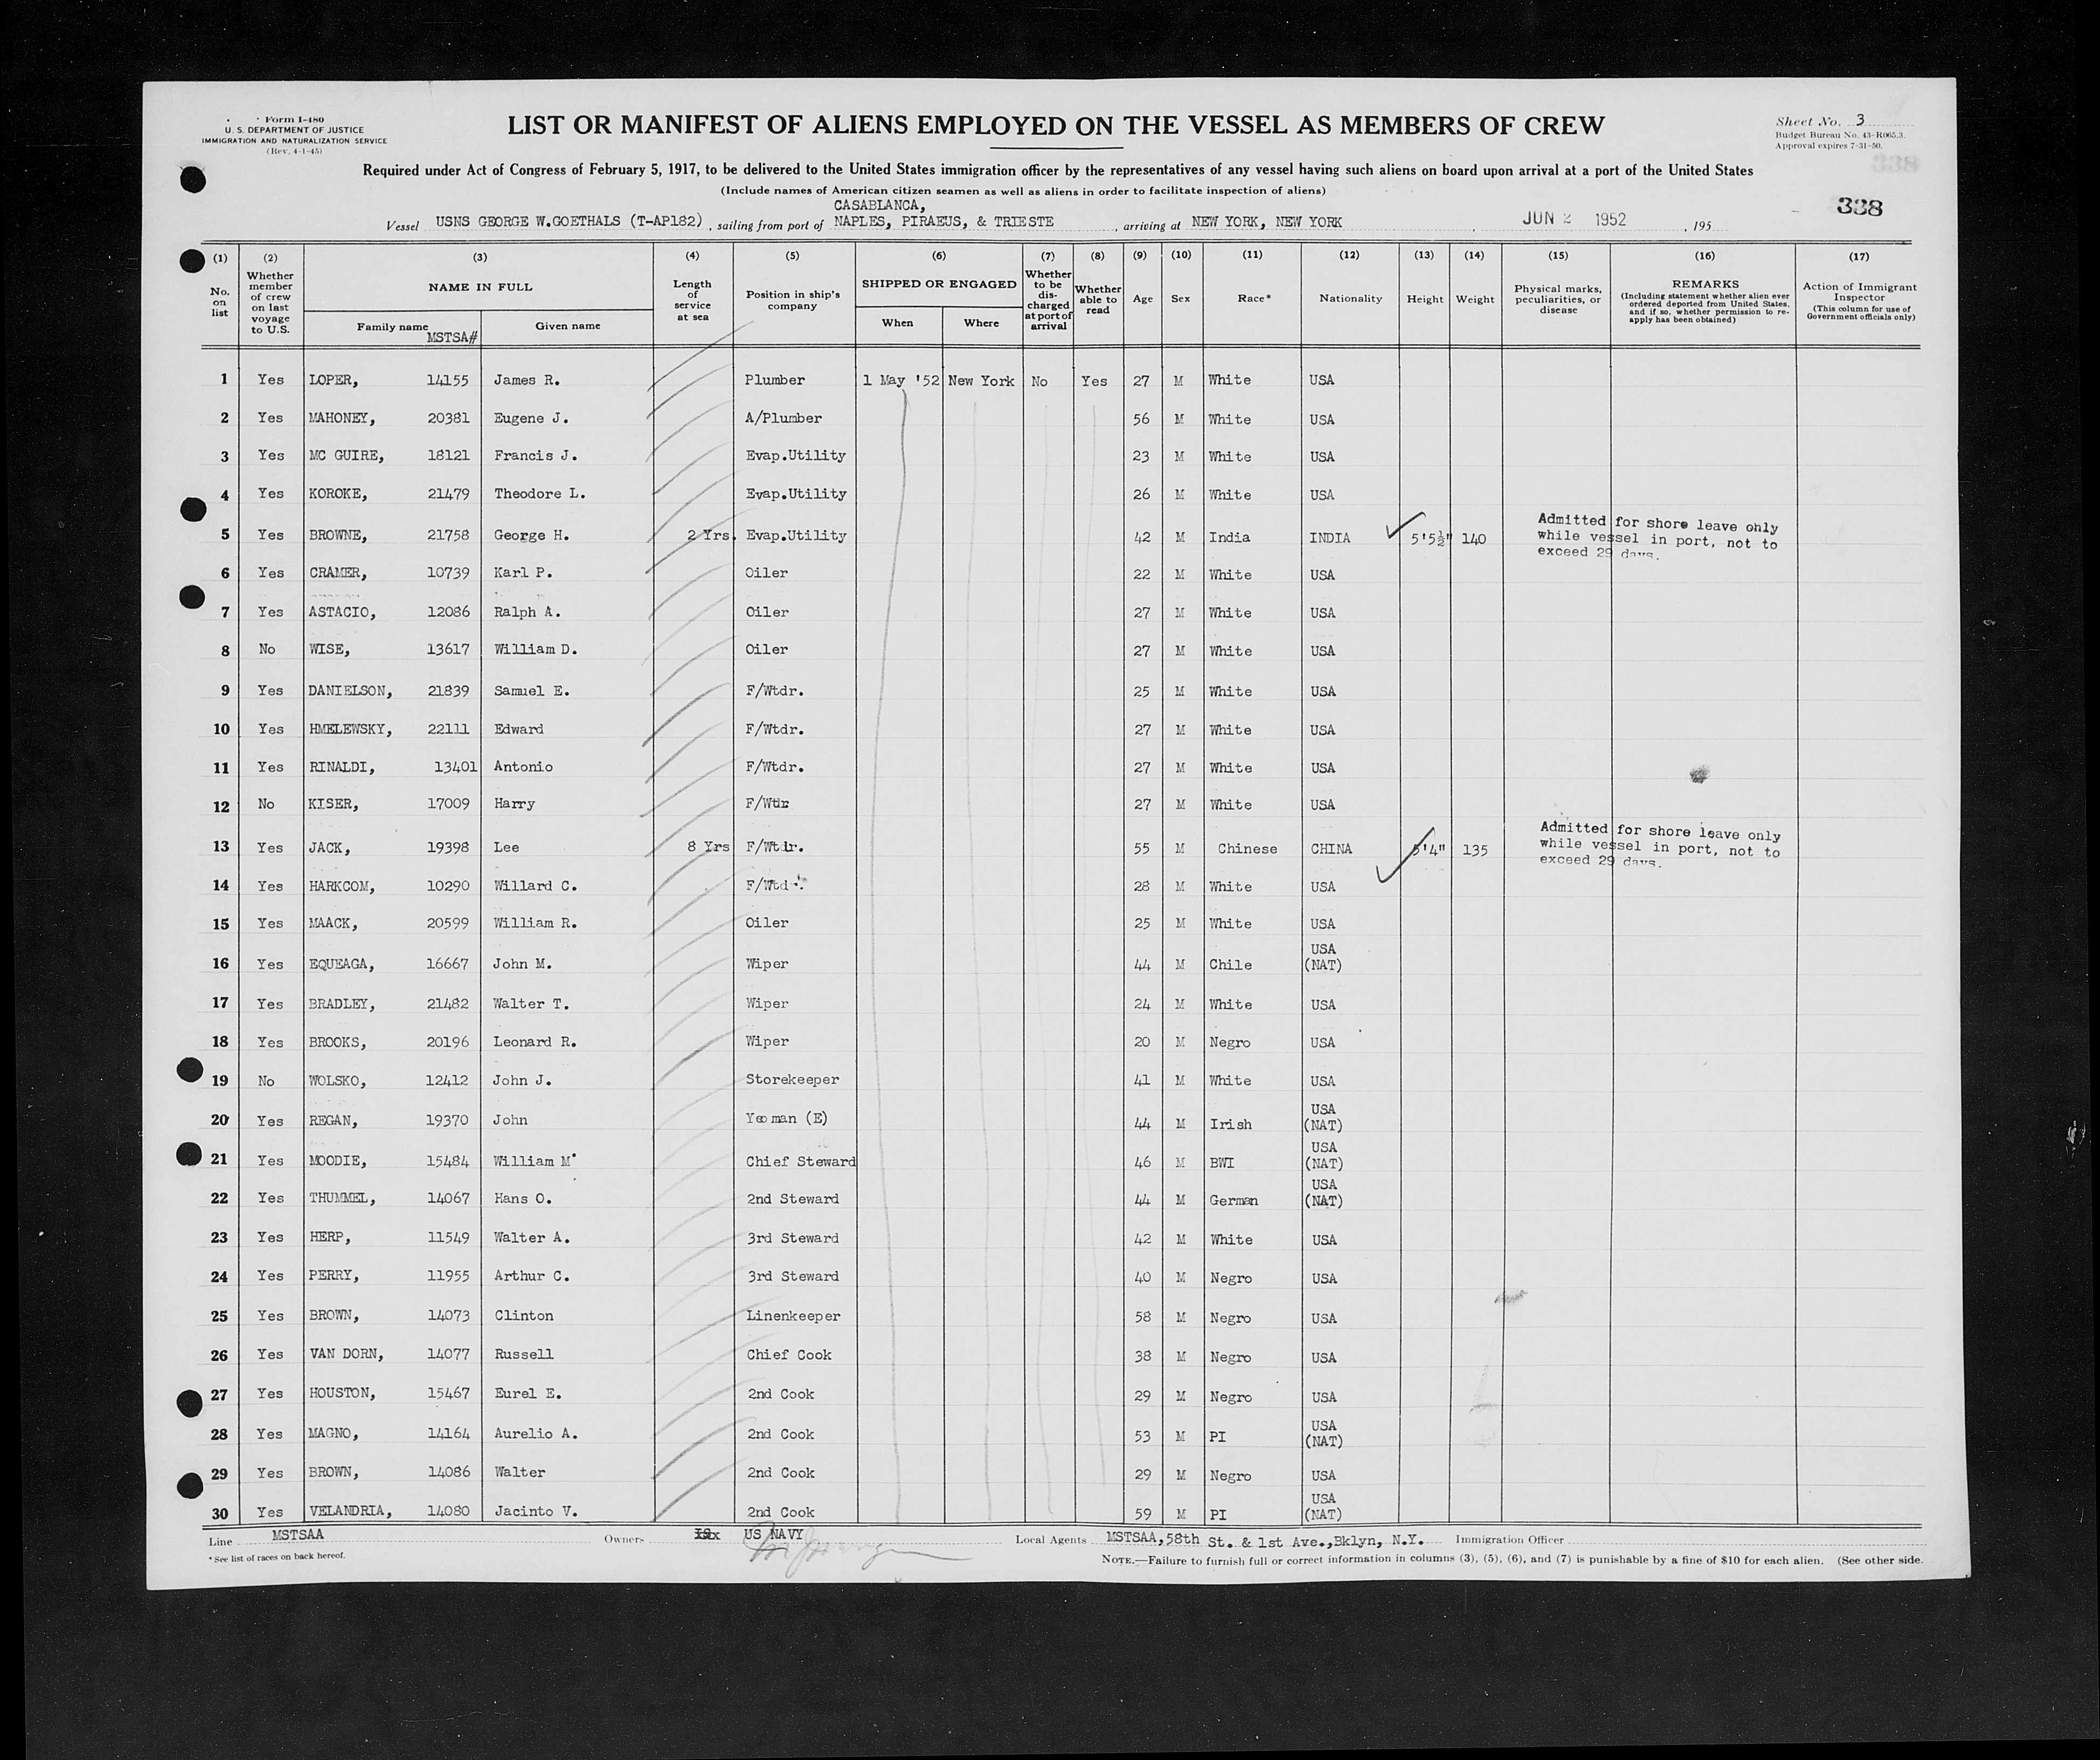 Form I-480
U. S. DEPARTMENT OF JUSTICE
IMMIGRATION AND NATURALIZATION SERVICE
(Rev. 4-1-45)
LIST OR MANIFEST OF ALIENS EMPLOYED ON THE VESSEL AS MEMBERS OF CREW
Sheet No. 3
Budget Bureau No. 43-R065.3.
Approval expires 7-31-50.
338
Required under Act of Congress of February 5, 1917, to be delivered to the United States immigration officer by the representatives of any vessel having such aliens on board upon arrival at a port of the United States
(Include names of American citizen seamen as well as aliens in order to facilitate inspection of aliens)
CASABLANCA,
338
Vessel USNS GEORGE W.GOETHALS (T-AP182), sailing from port of NAPLES, PIRAEUS, & TRIESTE, arriving at NEW YORK, NEW YORK, JUN 2 1952, 195
(1) (2) (3) (4) (5) (6) (7) (8) (9) (10) (11) (12) (13) (14) (15) (16) (17)
No. on list
Whether member of crew on last voyage to U.S.
NAME IN FULL
Family name MSTSA#
Given name
Length of service at sea
Position in ship's company
SHIPPED OR ENGAGED
When
Where
Whether to be discharged at port of arrival
Whether able to read
Age
Sex
Race*
Nationality
Height
Weight
Physical marks, peculiarities, or disease
REMARKS
(Including statement whether alien ever ordered deported from United States, and if so, whether permission to re-apply has been obtained)
Action of Immigrant Inspector
(This column for use of Government officials only)
1 Yes LOPER, 14155 James R. Plumber 1 May '52 New York No Yes 27 M White USA
2 Yes MAHONEY, 20381 Eugene J. A/Plumber 56 M White USA
3 Yes MC GUIRE, 18121 Francis J. Evap.Utility 23 M White USA
4 Yes KOROKE, 21479 Theodore L. Evap.Utility 26 M White USA
5 Yes BROWNE, 21758 George H. 2 Yrs. Evap.Utility 42 M India INDIA 5'5½" 140 Admitted for shore leave only
while vessel in port, not to
exceed 29 days.
6 Yes CRAMER, 10739 Karl P. Oiler 22 M White USA
7 Yes ASTACIO, 12086 Ralph A. Oiler 27 M White USA
8 No WISE, 13617 William D. Oiler 27 M White USA
9 Yes DANIELSON, 21839 Samuel E. F/Wtdr. 25 M White USA
10 Yes HMELEWSKY, 22111 Edward F/Wtdr. 27 M White USA
11 Yes RINALDI, 13401 Antonio F/Wtdr. 27 M White USA
12 No KISER, 17009 Harry F/Wtdr 27 M White USA
13 Yes JACK, 19398 Lee 8 Yrs F/Wtdr. 55 M Chinese CHINA 5'4" 135 Admitted for shore leave only
while vessel in port, not to
exceed 29 days.
14 Yes HARKCOM, 10290 Willard C. F/Wtdr. 28 M White USA
15 Yes MAACK, 20599 William R. Oiler 25 M White USA
16 Yes EQUEAGA, 16667 John M. Wiper 44 M Chile USA (NAT)
17 Yes BRADLEY, 21482 Walter T. Wiper 24 M White USA
18 Yes BROOKS, 20196 Leonard R. Wiper 20 M Negro USA
19 No WOLSKO, 12412 John J. Storekeeper 41 M White USA
20 Yes REGAN, 19370 John Yeoman (E) 44 M Irish USA (NAT)
21 Yes MOODIE, 15484 William M. Chief Steward 46 M BWI USA (NAT)
22 Yes THUMMEL, 14067 Hans O. 2nd Steward 44 M German USA (NAT)
23 Yes HERP, 11549 Walter A. 3rd Steward 42 M White USA
24 Yes PERRY, 11955 Arthur C. 3rd Steward 40 M Negro USA
25 Yes BROWN, 14073 Clinton Linenkeeper 58 M Negro USA
26 Yes VAN DORN, 14077 Russell Chief Cook 38 M Negro USA
27 Yes HOUSTON, 15467 Eurel E. 2nd Cook 29 M Negro USA
28 Yes MAGNO, 14164 Aurelio A. 2nd Cook 53 M PI USA (NAT)
29 Yes BROWN, 14086 Walter 2nd Cook 29 M Negro USA
30 Yes VELANDRIA, 14080 Jacinto V. 2nd Cook 59 M PI USA (NAT)
Line MSTSAA Owners US NAVY Local Agents MSTSAA,58th St. & 1st Ave.,Bklyn, N.Y. Immigration Officer
* See list of races on back hereof.
NOTE.—Failure to furnish full or correct information in columns (3), (5), (6), and (7) is punishable by a fine of $10 for each alien. (See other side.